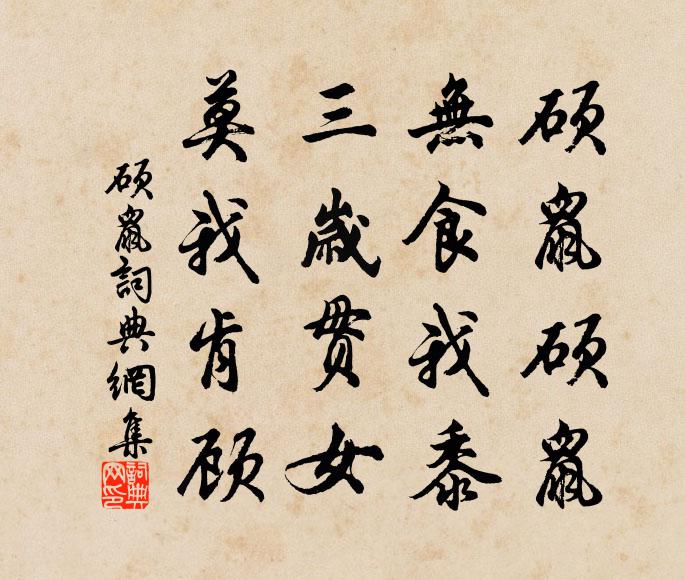 硕鼠硕鼠
無食我黍
三歲贯女
莫我肯顾
硕鼠詞典網集
詞典网印